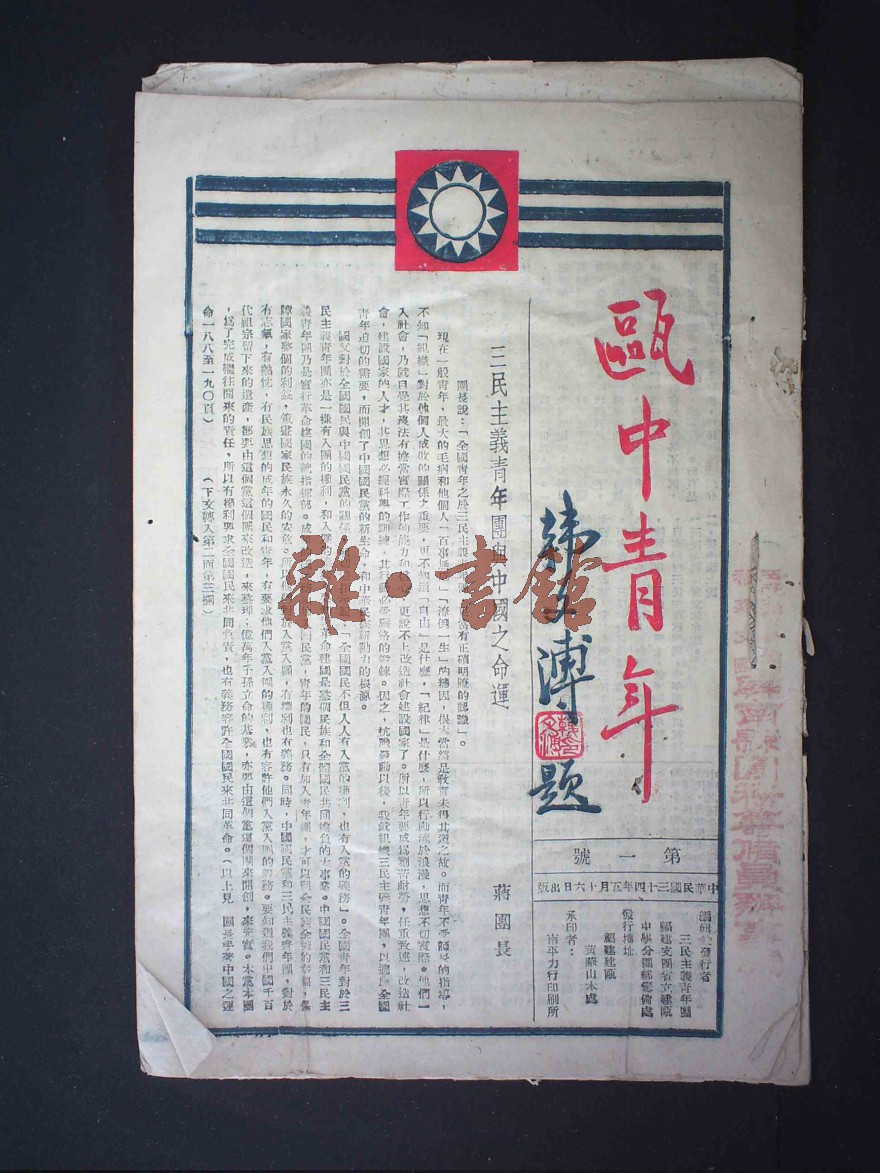 甌中青年
韓文溥題
第一號
中華民國三十四年五月十六日出版
編輯兼發行者
三民主義青年團
福建支團省立建甌
中學分團部籌備處
發行地址
福建建甌
黃華山本處
承印者：
南平力行印刷所
三民主義青年團與中國之命運
蔣團長
團長說：「全國青年之於三民主義青年
有正確明瞭的認識」。
現在一般青年，最大的毛病和他個人「百事
一生」的總因，
教育未得其道之故。而青年不受師長的指導，
不知「組織」對於他個人成敗的關係之重要，更不知道「自由」是什麼，「紀律」是什麼，所以行動流於浪漫，思想不切實際。他們一
入社會，乃
有擔當實際工作的能力
更說不上改造社會建設國家了。所以青年要成為刻苦耐勞，任重致遠，改造社
會，建設國家的人才，其思想必經科學的訓練，其行動必受嚴格的鍛鍊。因之，抗戰發動以後，我就組織三民主義青年團，以適應全國
青年迫切的需要，而開創了中國國民黨的新生命，和中華民族新動力的根源。
國父對於全國國民與中國國民黨的關係
「全國國民不但人人有入黨的權利，也有入黨的義務」。全國青年對於三
民主義青年團亦是一樣有入團的權利，和入團的
革命建國是整個民族和全體國民共同擔負的大事業。中國國民黨和三民主
義青年團乃是實行革命建國的總指揮部。成
國民黨，青年的國民，只有加入青年團，才可以顧全民族全體的幸福，保
障國家整個的利益，策畫國家民族永久的安危。所以
對於入黨入團，有權利也有義務。同時，中國國民黨和三民主義青年團，對於
有志氣，有熱忱，有民族思想的成年的國民和青年，有要求他們入黨入團的權利，也有容許他們入黨入團的義務。要知道我們中國千百
代祖宗留下來的遺產，都要由這個黨這個團來改造，來整理；億萬年子孫立命的基業，亦要由這個黨這個團來開創，來充實。本黨本團
，為了完成繼往開來的責任，所以有權利要求全國國民來共同負責，也有義務容許全國國民來共同革命。（以上見 團長手著中國之運
命一八八至一九〇頁）
（下文轉入第二面第三欄）
雜·書館